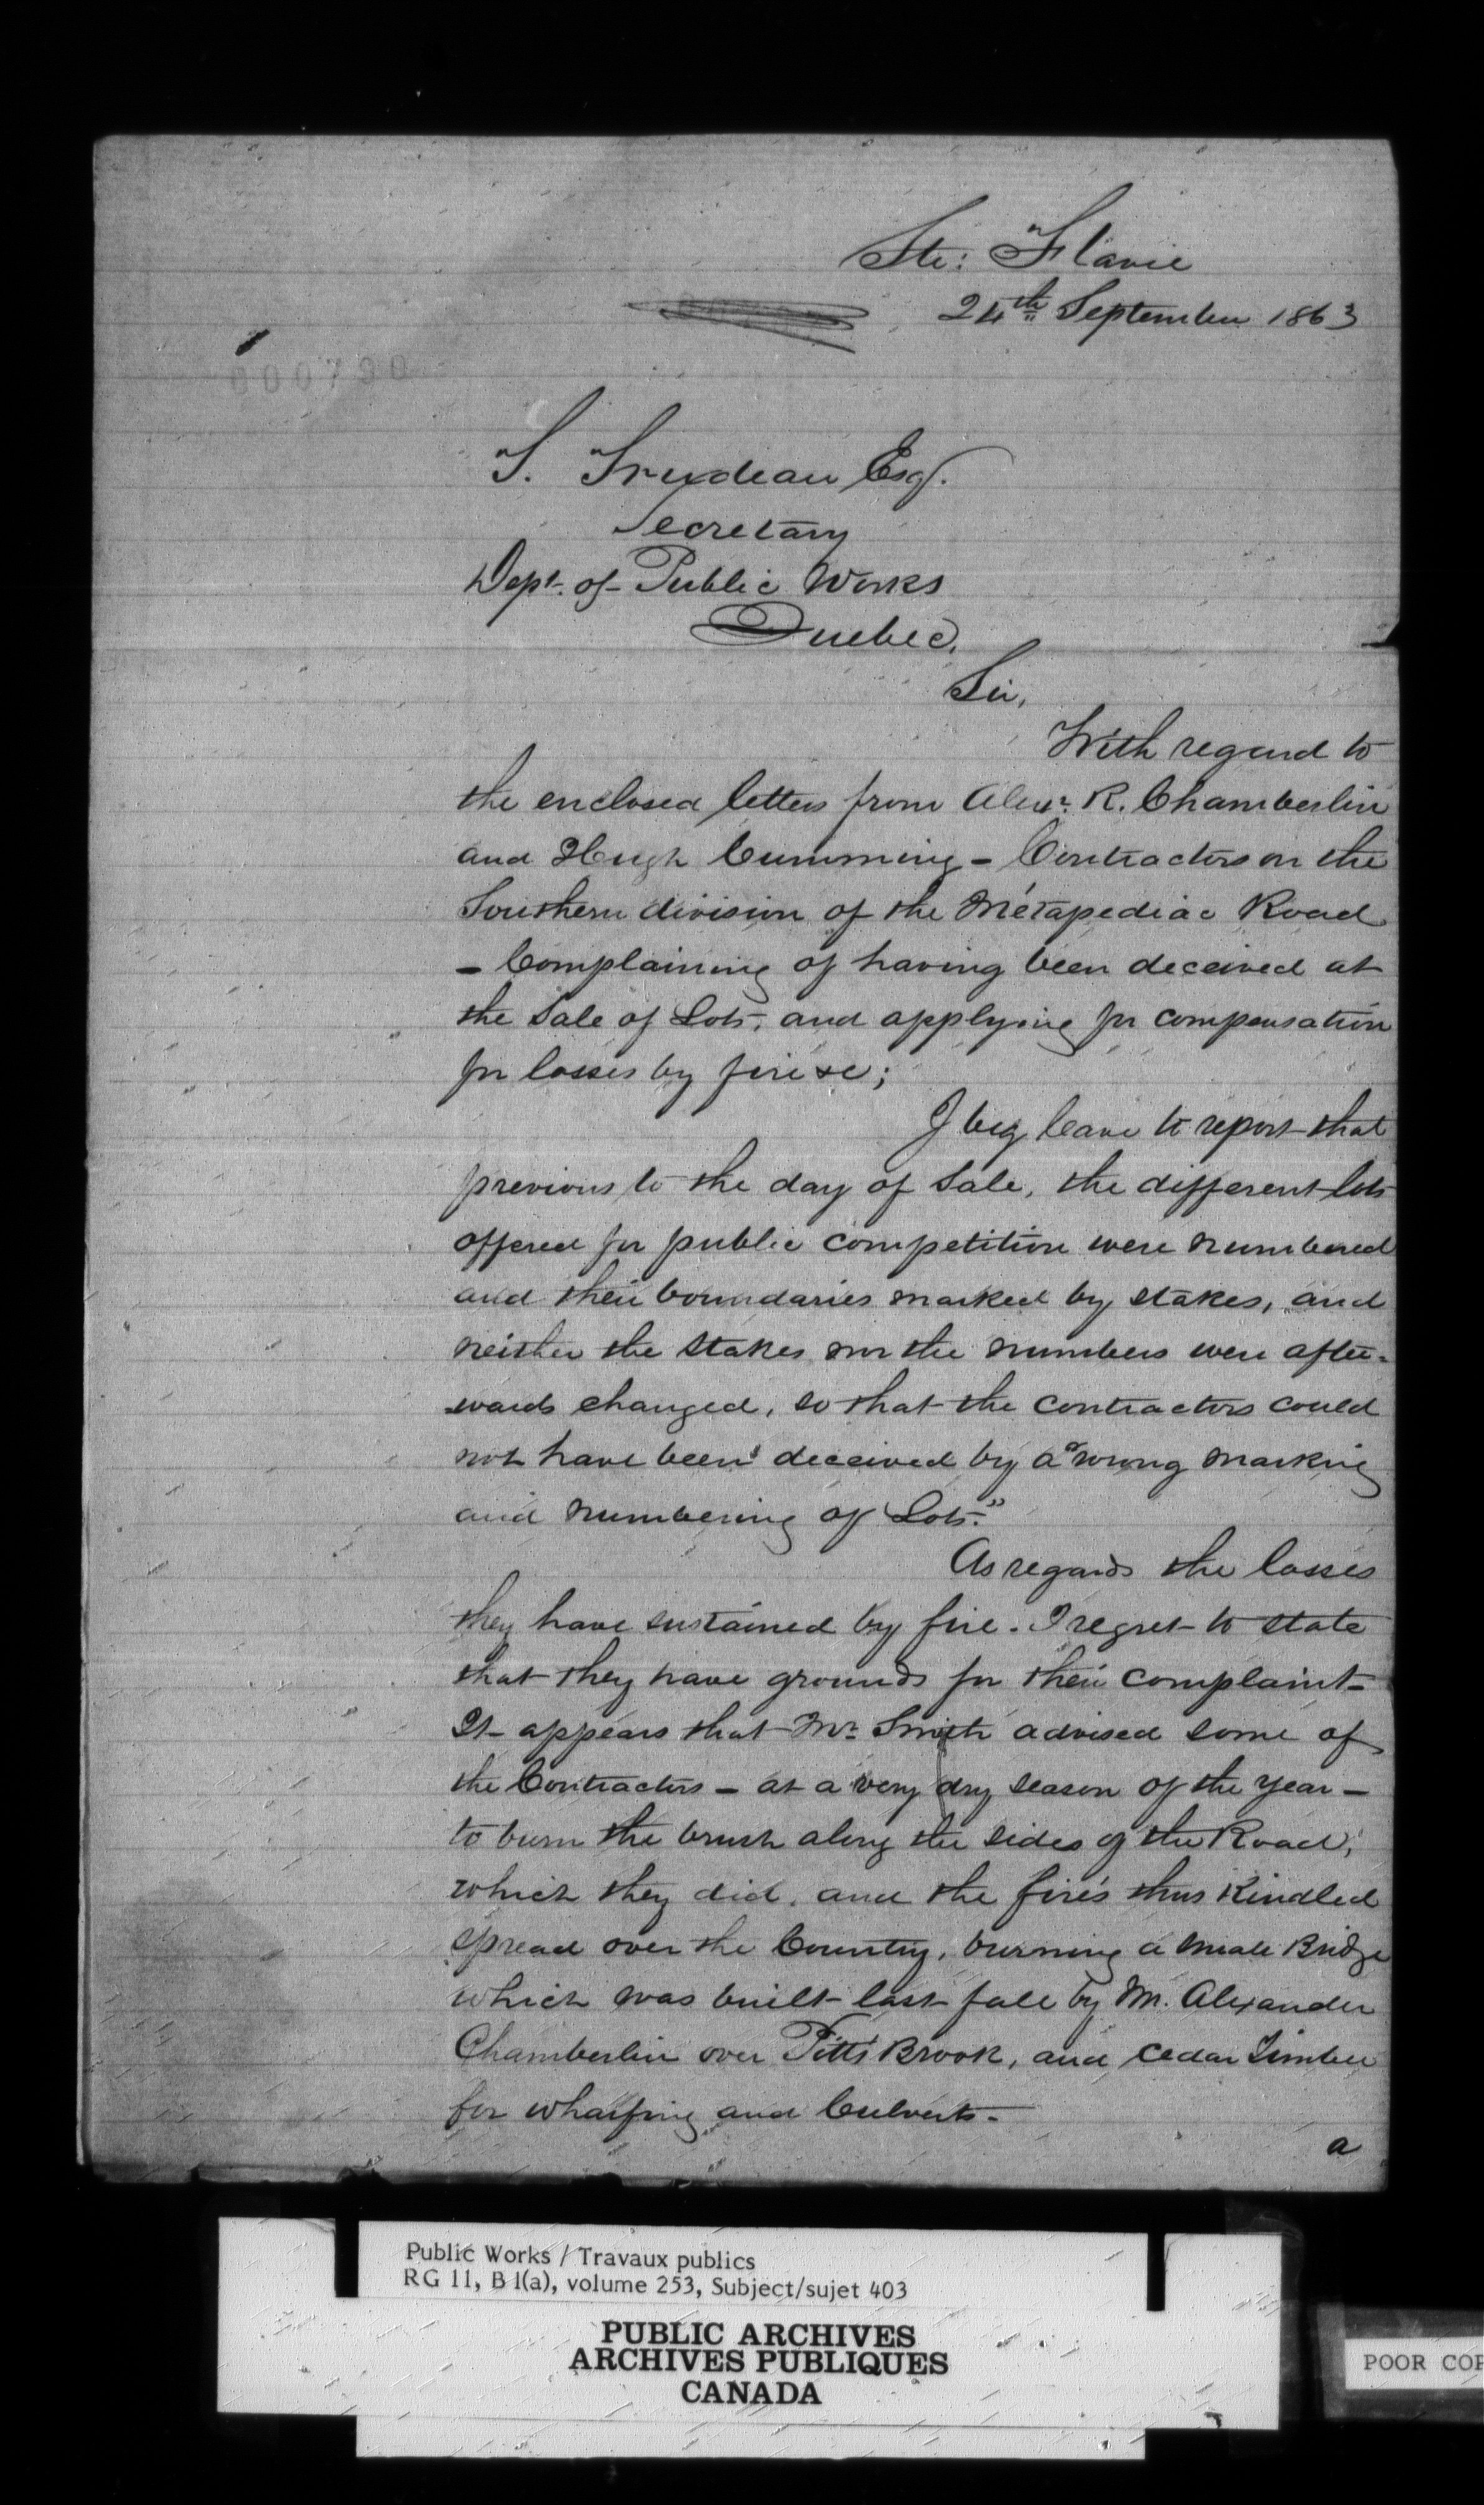 Ste: Flavie
24th September 1863
000790
T. Trudeau Esqr.
Secretary
Dept. of Public Works
Quebec.
Sir,
With regard to
the enclosed letters from Alexr. R. Chamberlin
and Hugh Cumming - Contractors on the
Southern division of the Métapediac Road
- Complaining of having been deceived at
the Sale of Lots, and applying for compensation
for losses by fire &c;
I beg leave to report that
previous to the day of Sale, the different lots
offered for public competition were numbered
and their boundaries marked by stakes, and
neither the stakes nor the numbers were after-
wards changed, so that the contractors could
not have been deceived by a "wrong marking
and numbering of Lots."
As regards the losses
they have sustained by fire. I regret to state
that they have grounds for their complaint-
It appears that Mr. Smith advised some of
the Contractors - at a very dry season of the year -
to burn the brush along the sides of the Road,
which they did, and the fires thus kindled
spread over the Country, burning a Bridge
which was built last fall by Mr. Alexander
Chamberlin over Pitts Brook, and Cedar Timber
for wharfing and Culverts.
a
Public Works / Travaux publics
RG 11, B 1(a), volume 253, Subject/sujet 403
PUBLIC ARCHIVES
ARCHIVES PUBLIQUES
CANADA
POOR COP